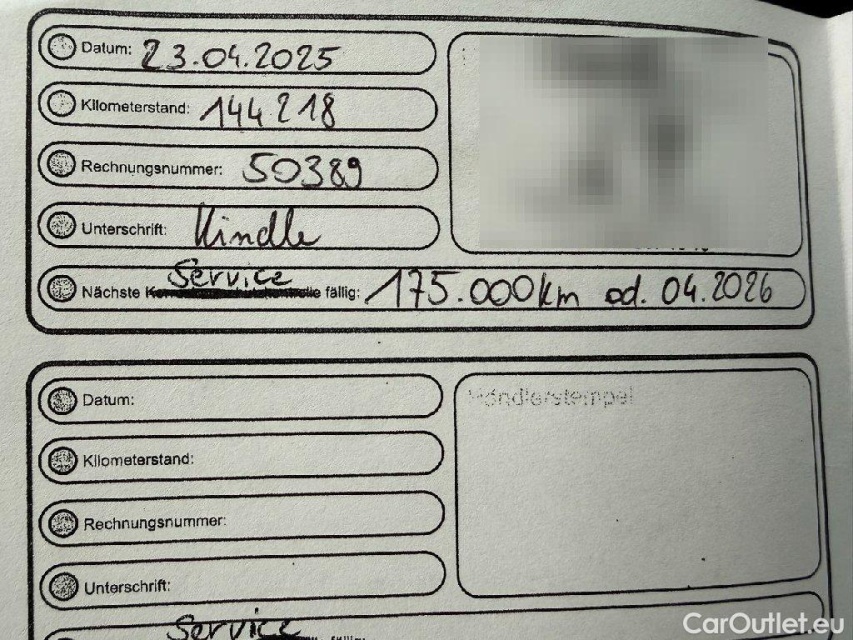 Datum: 23.04.2025
Kilometerstand: 144218
Rechnungsnummer: 50389
Unterschrift: Kindle
Service
Nächste fällig: 175.000km od. 04.2026
Datum:
Händlerstempel
Kilometerstand:
Rechnungsnummer:
Unterschrift:
Service
CarOutlet.eu